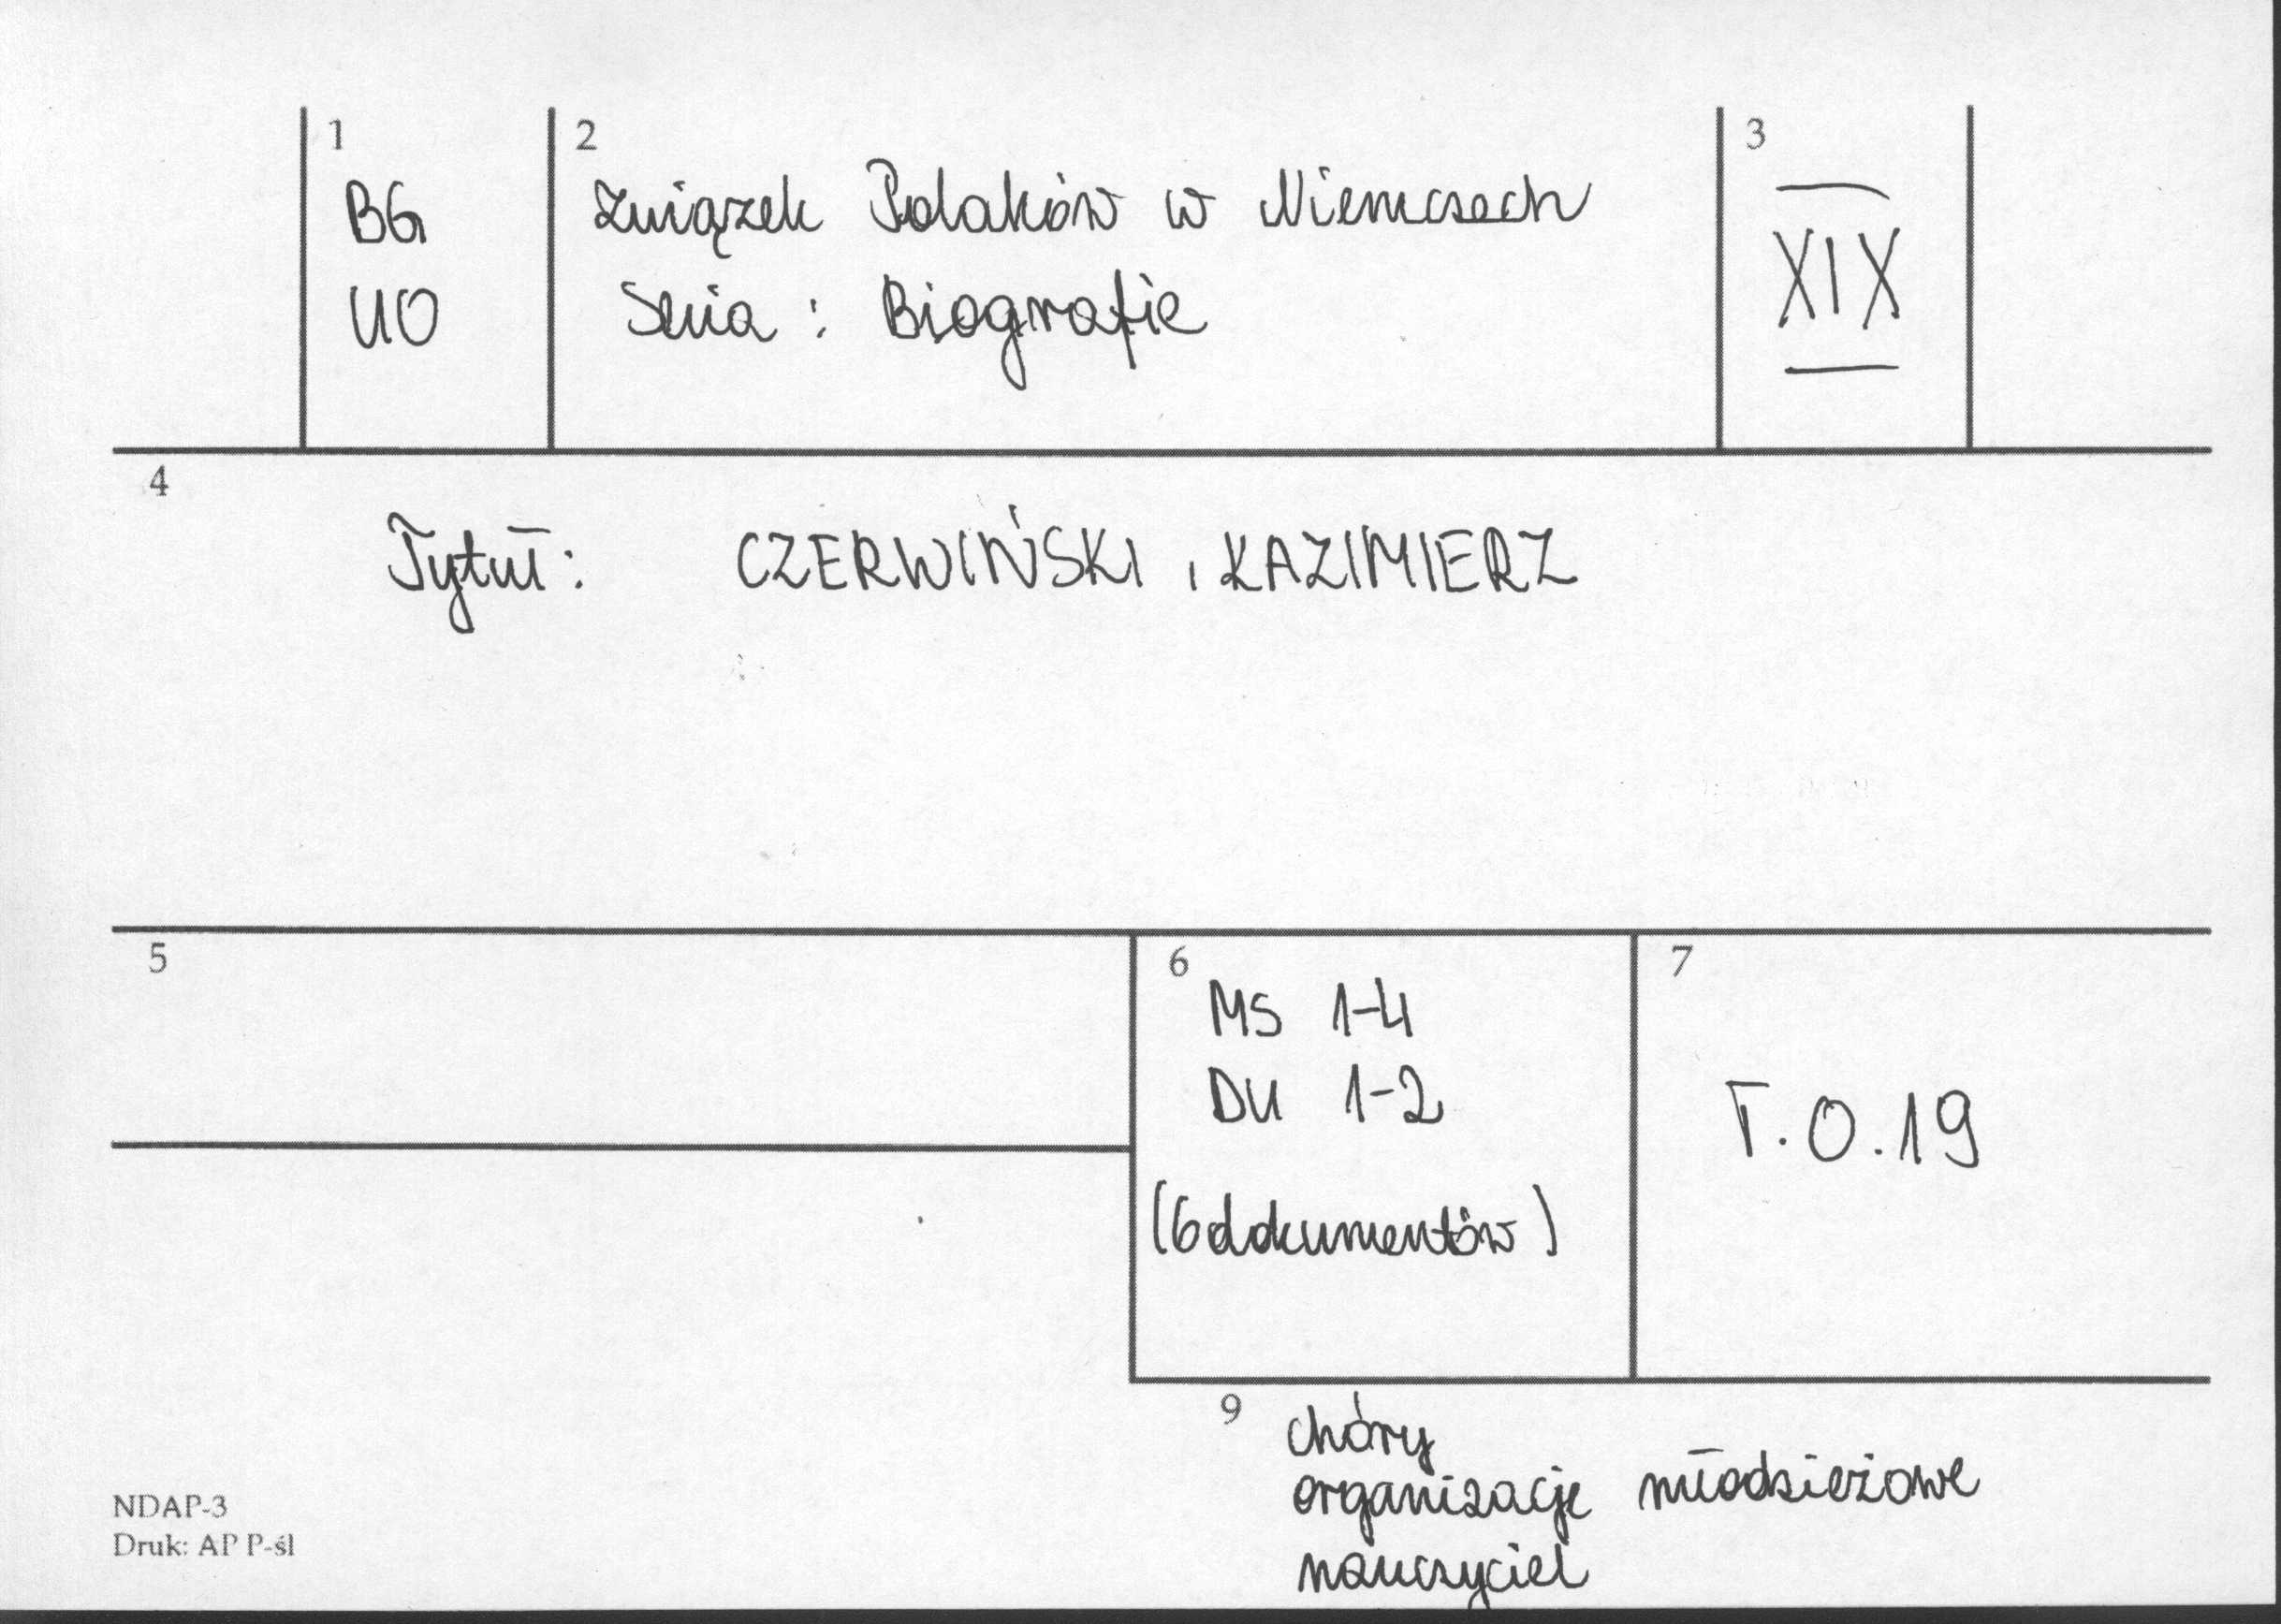 1
BG
UO
2
Związek Polaków w Niemczech
Seria : Biografie
3
XIX
4
Tytuł: CZERWIŃSKI, KAZIMIERZ
5
6
MS 1-4
DU 1-2
(6 dokumentów)
7
T.O.19
9
chóry
organizacje młodzieżowe
nauczyciel
NDAP-3
Druk: AP P-śl